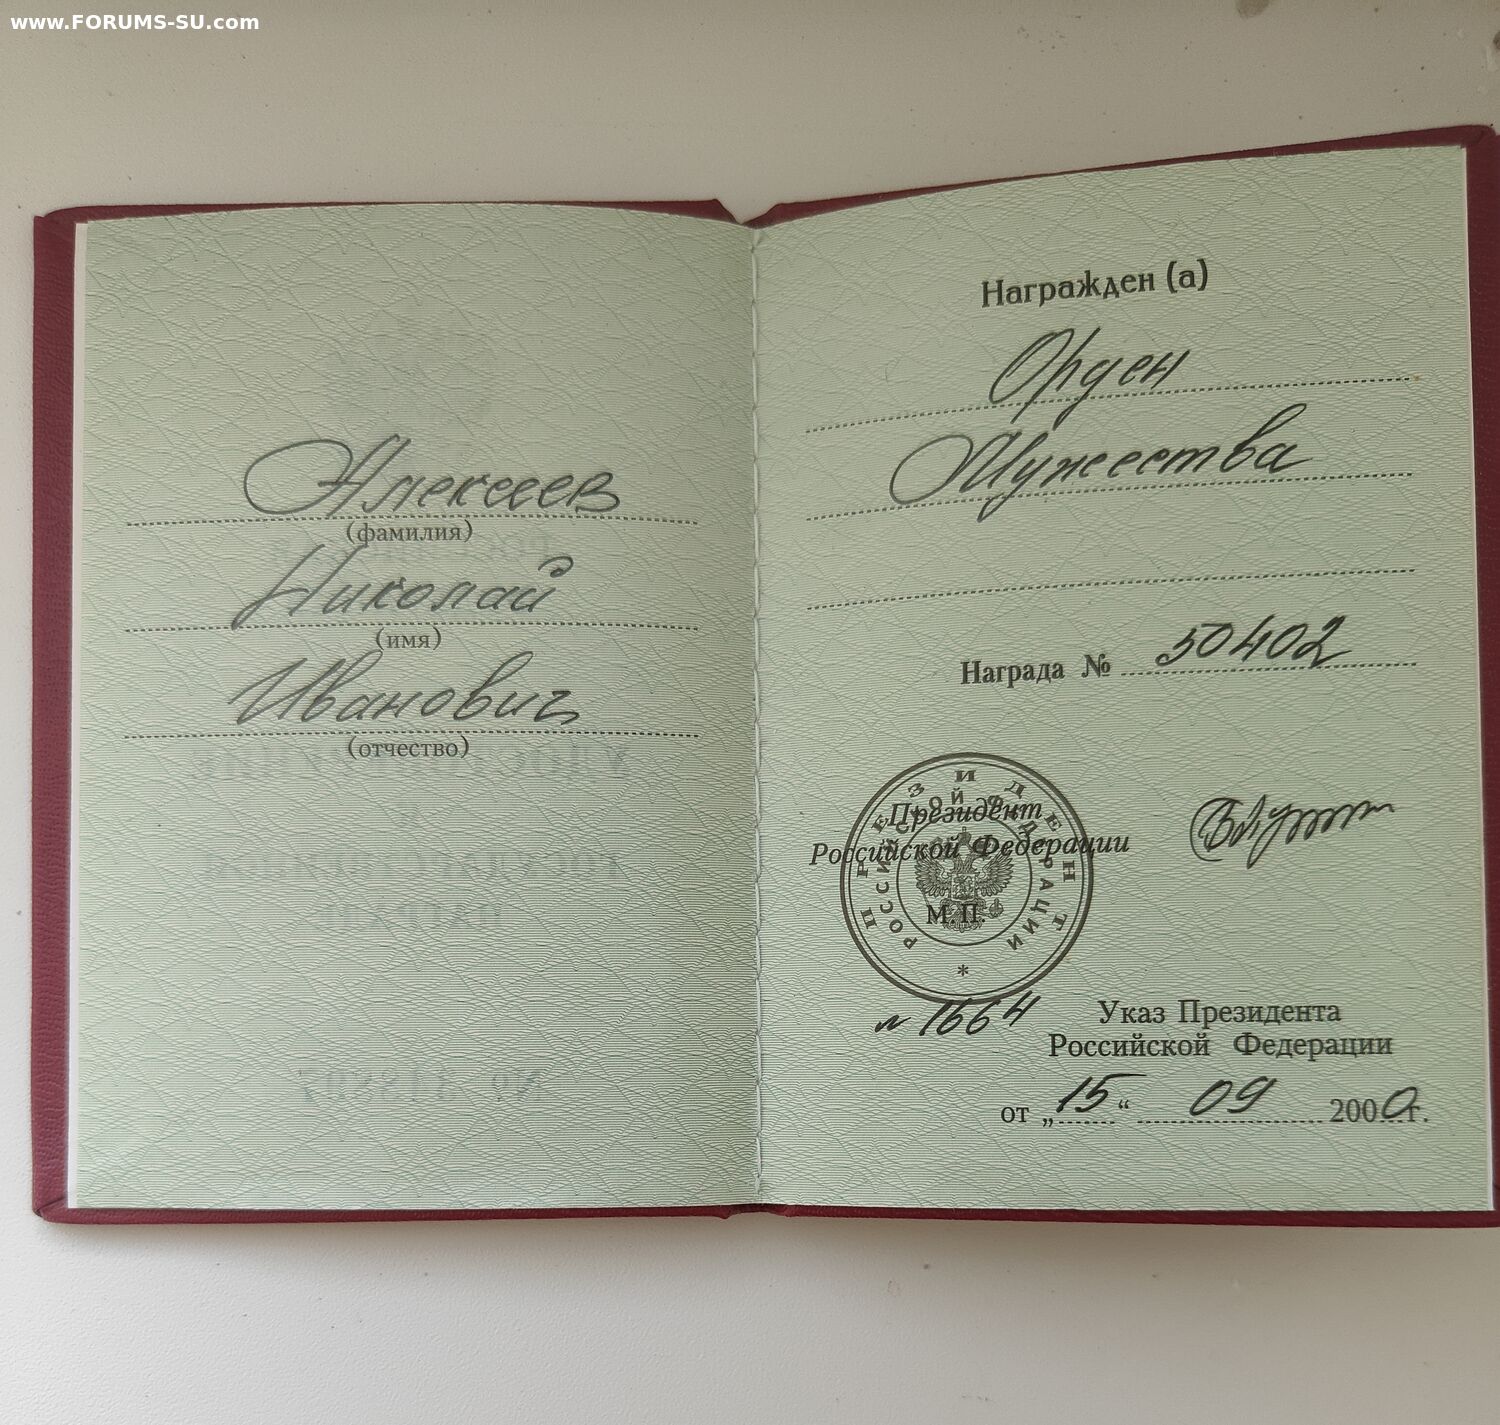 www.FORUMS-SU.com
Алексеев
(фамилия)
Николай
(имя)
Иванович
(отчество)
Награжден (а)
Орден
Мужества
Награда № 50402
ПРЕЗИДЕНТ
РОССИЙСКОЙ ФЕДЕРАЦИИ
Президент
Российской Федерации
М.П.
*
№ 1664
Указ Президента
Российской Федерации
от „15“ 09 2000г.